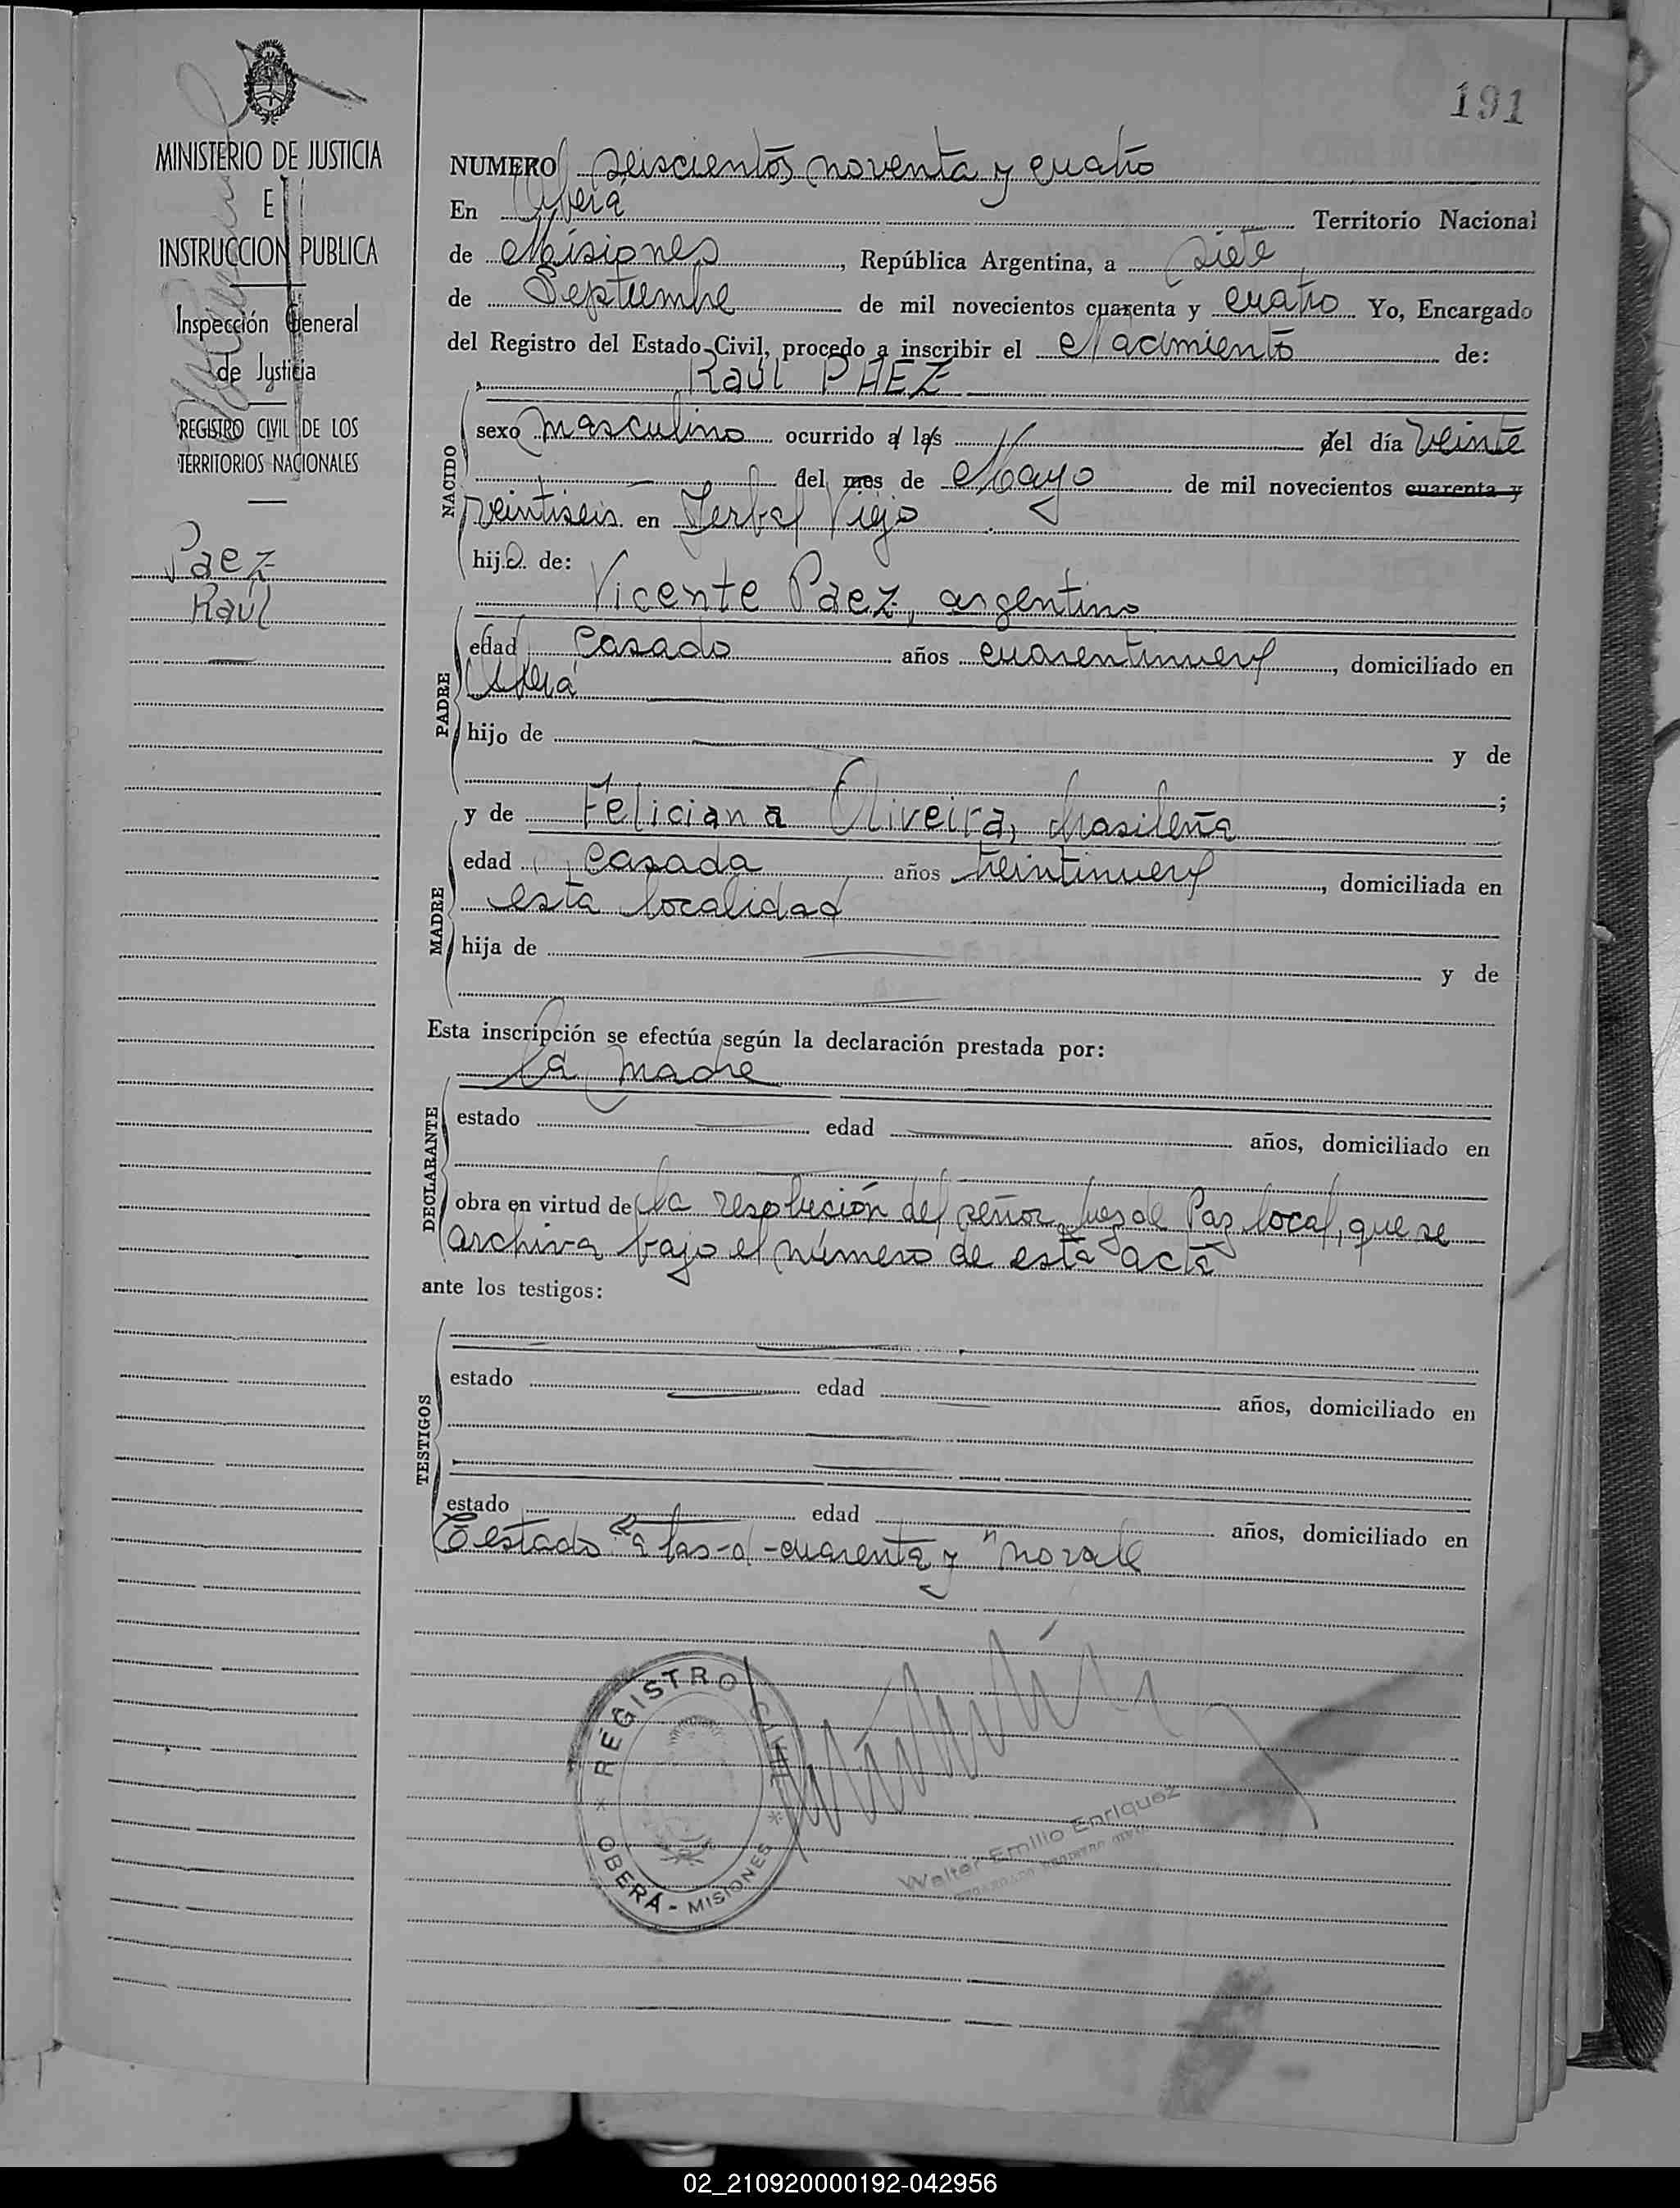 191
MINISTERIO DE JUSTICIA
E
INSTRUCCION PUBLICA
Inspección General
de Justicia
REGISTRO CIVIL DE LOS
TERRITORIOS NACIONALES
Paez
Raúl
NUMERO seiscientos noventa y cuatro
En Oberá Territorio Nacional
de Misiones, República Argentina, a siete
de Septiembre de mil novecientos cuarenta y cuatro Yo, Encargado
del Registro del Estado Civil, procedo a inscribir el Nacimiento de:
Raúl PAEZ
NACIDO
sexo masculino ocurrido a las del día veinte
del mes de Mayo de mil novecientos cuarenta y
veintiseis en Yerbal Viejo
hijo de:
Vicente Paez, argentino
PADRE
edad casado años cuarentinueve, domiciliado en
Oberá
hijo de y de
;
y de Feliciana Oliveira, brasileña
MADRE
edad casada años treintinueve, domiciliada en
esta localidad
hija de y de
Esta inscripción se efectúa según la declaración prestada por:
la madre
DECLARANTE
estado edad años, domiciliado en
obra en virtud de la resolución del señor Juez de Paz local, que se
archiva bajo el número de esta acta
ante los testigos:
TESTIGOS
estado edad años, domiciliado en
estado edad años, domiciliado en
Testado "a las-d-cuarenta y" no vale
REGISTRO CIVIL
OBERÁ - MISIONES
Walter Emilio Enriquez
02_210920000192-042956